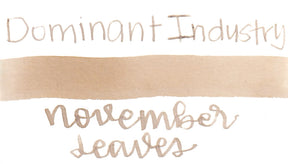 Dominant Industry
november
leaves